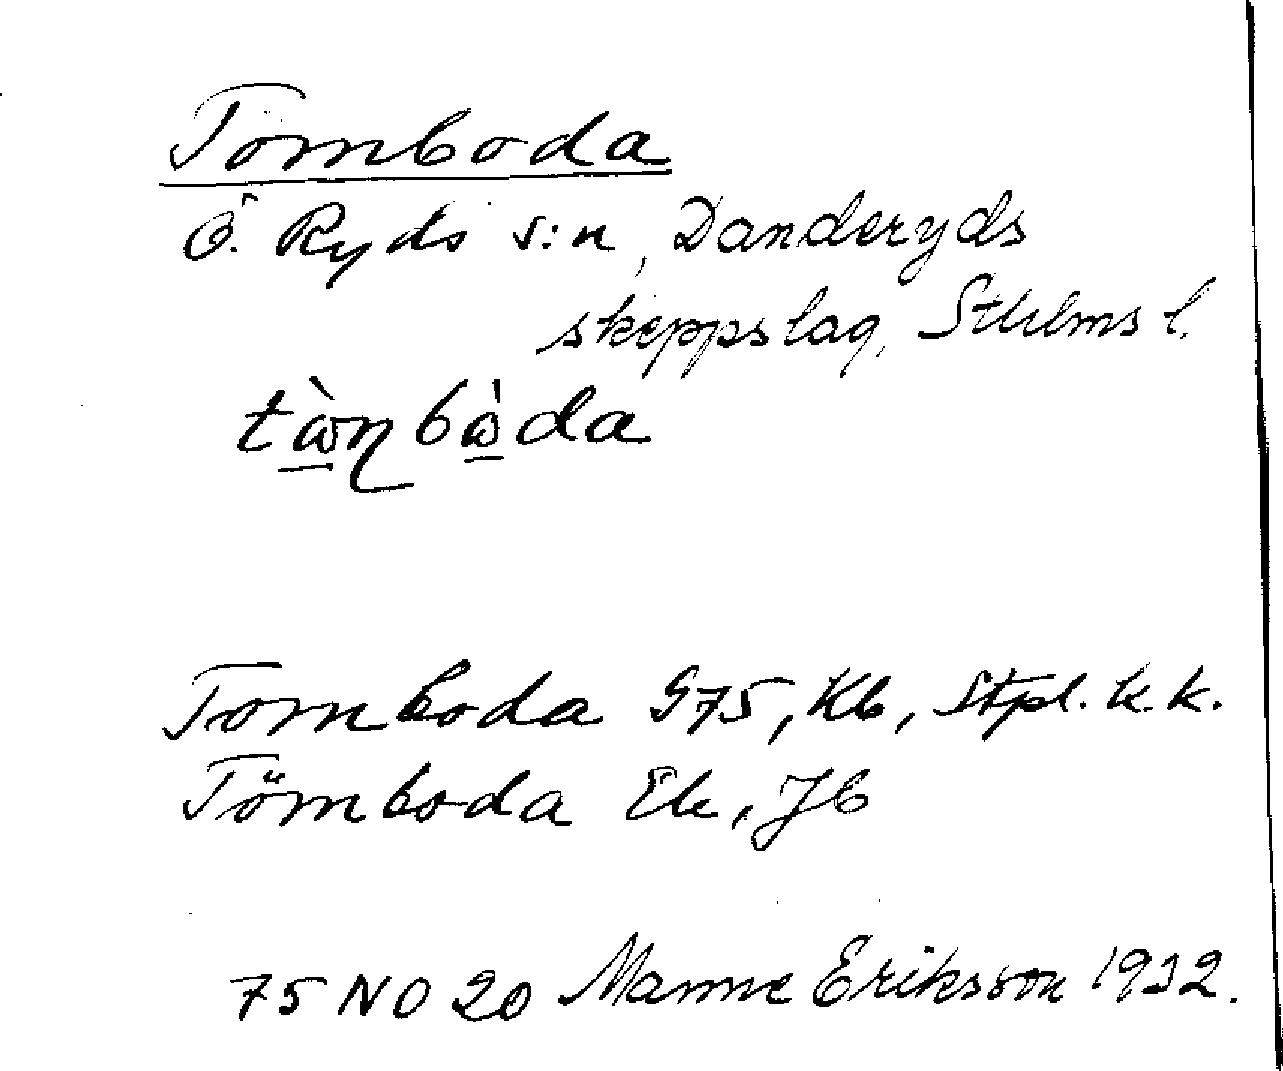 Tornboda
Ö. Ryds s:n, Danderyds
skeppslag, Sthlms l.
tɷ̀ɳbɷ̀da
Tornboda G75, Kb, Stpl. k. k.
Törnboda Ek, Jb
75 NO 20 Manne Eriksson 1932.